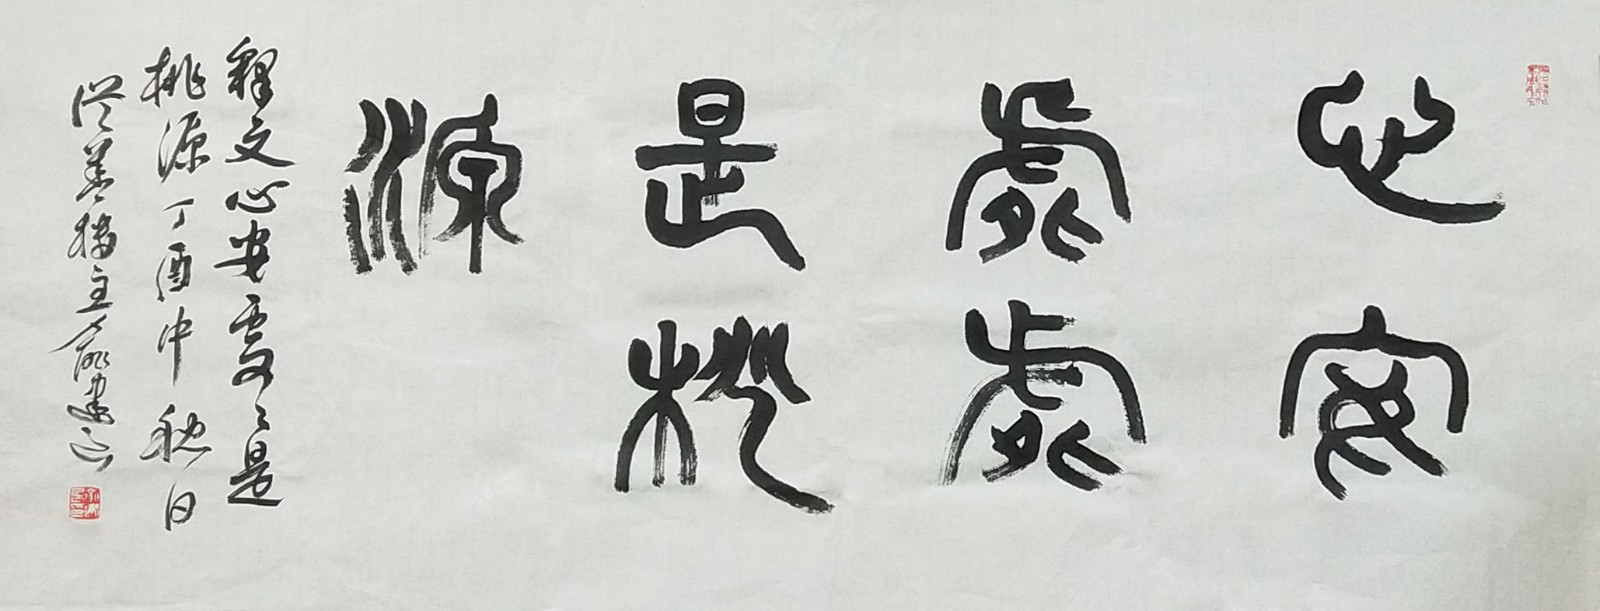 心安
處處
是桃
源
釋文心安處々是
桃源丁酉中秋日
從善樓主